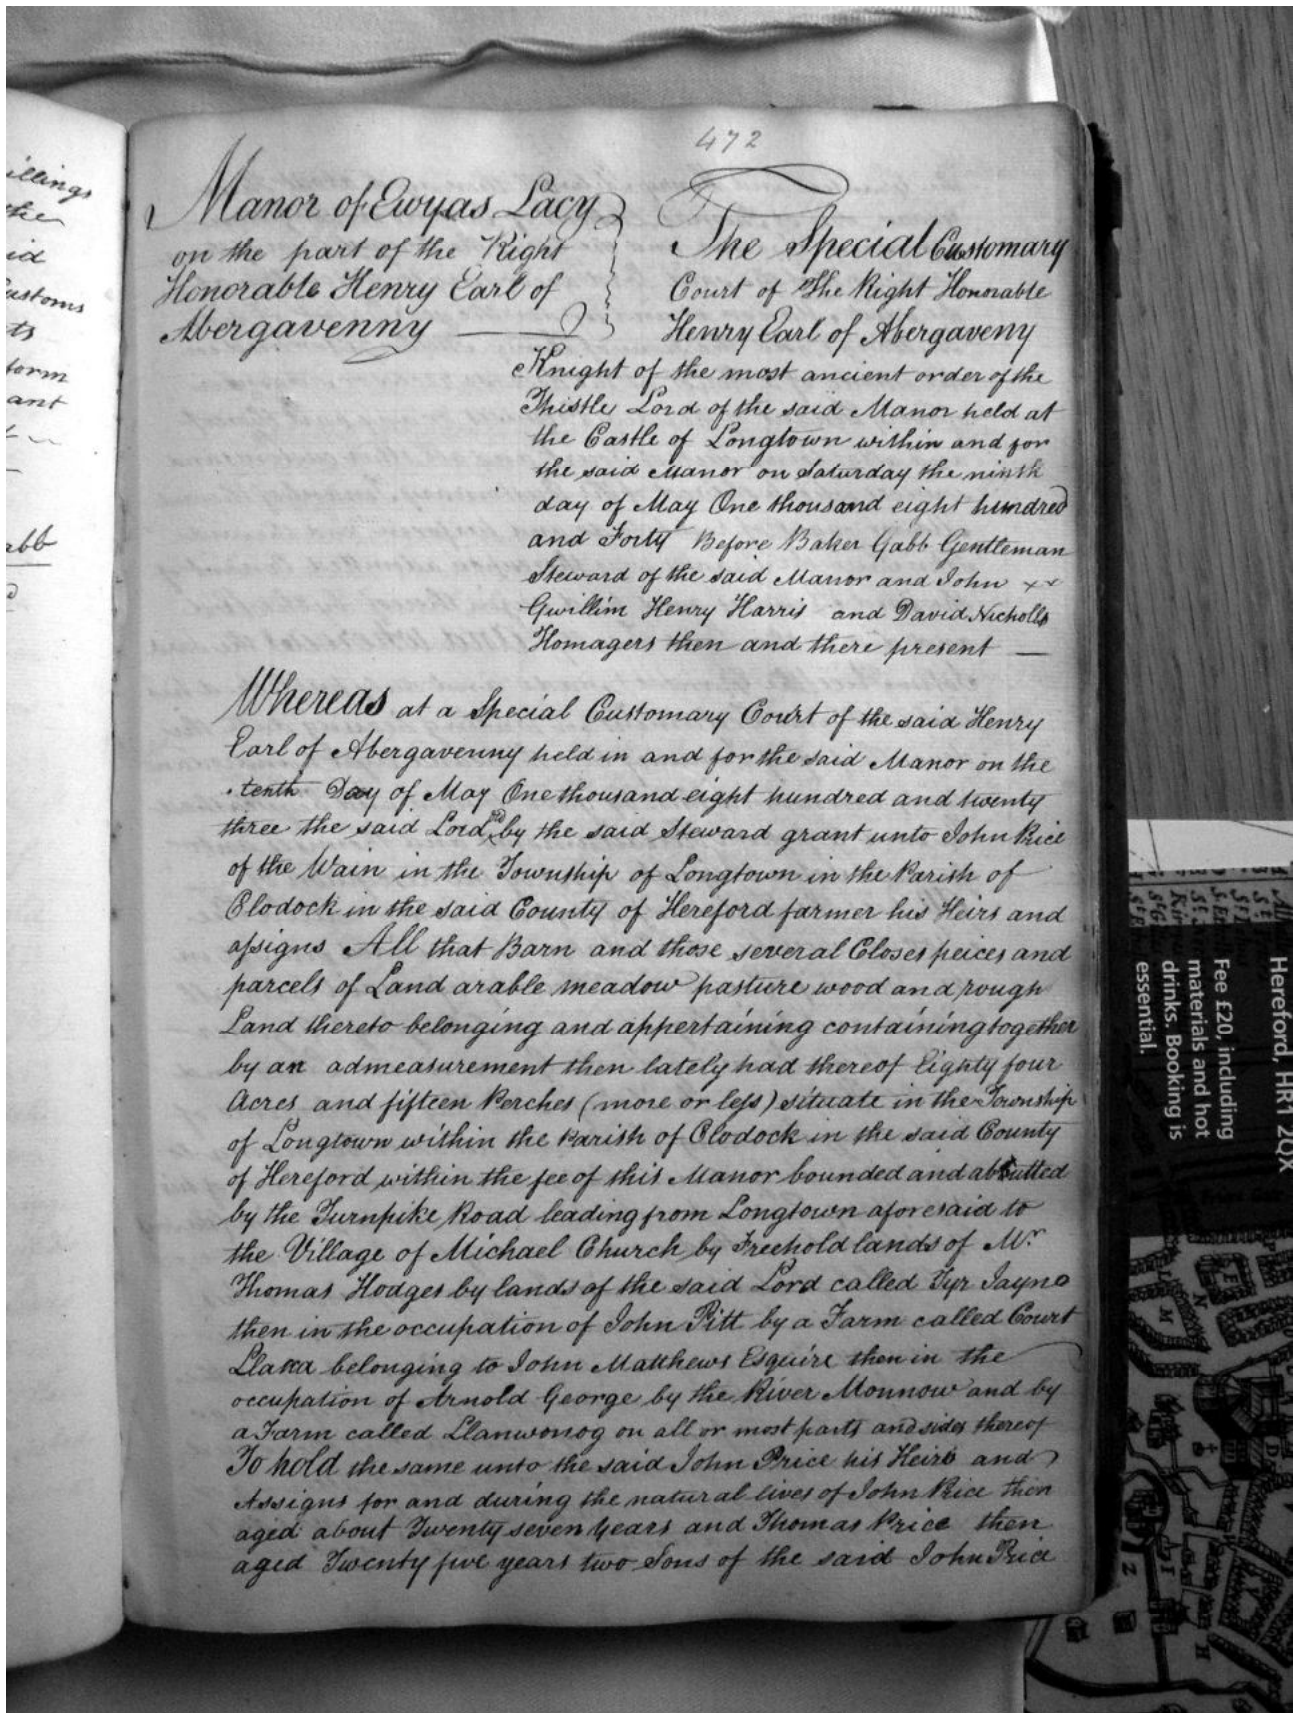 472
Manor of Ewyas Lacy
on the part of the Right
Honorable Henry Earl of
Abergavenny
The Special Customary
Court of The Right Honorable
Henry Earl of Abergaveny
Knight of the most ancient order of the
Thistle Lord of the said Manor held at
the Castle of Longtown within and for
the said Manor on Saturday the ninth
day of May One thousand eight hundred
and Forty Before Baker Gabb Gentleman
Steward of the said Manor and John
Gwillim Henry Harris and David Nicholls
Homagers then and there present
Whereas at a Special Customary Court of the said Henry
Earl of Abergavenny held in and for the said Manor on the
tenth Day of May One thousand eight hundred and twenty
three the said Lord by the said Steward grant unto John Price
of the Wain in the Township of Longtown in the Parish of
Clodock in the said County of Hereford farmer his Heirs and
assigns All that Barn and those several Closes peices and
parcels of Land arable meadow pasture wood and rough
Land thereto belonging and appertaining containing together
by an admeasurement then lately had thereof Eighty four
Acres and fifteen Perches (more or less) situate in the Township
of Longtown within the parish of Clodock in the said County
of Hereford within the fee of this Manor bounded and abbutted
by the Turnpike Road leading from Longtown aforesaid to
the Village of Michael Church by Freehold lands of Mr
Thomas Hodges by lands of the said Lord called Tyr Jayne
then in the occupation of John Pitt by a Farm called Court
Llaka belonging to John Matthews Esquire then in the
occupation of Arnold George by the River Monnow and by
a Farm called Llanwonog on all or most parts and sides thereof
To hold the same unto the said John Price his Heirs and
Assigns for and during the natural lives of John Price then
aged about Twenty seven years and Thomas Price then
aged Twenty five years two Sons of the said John Price
illings
the
id
Customs
ts
form
ant
abb
Hereford, HR1 2QX
Fee £20, including
materials and hot
drinks. Booking is
essential.